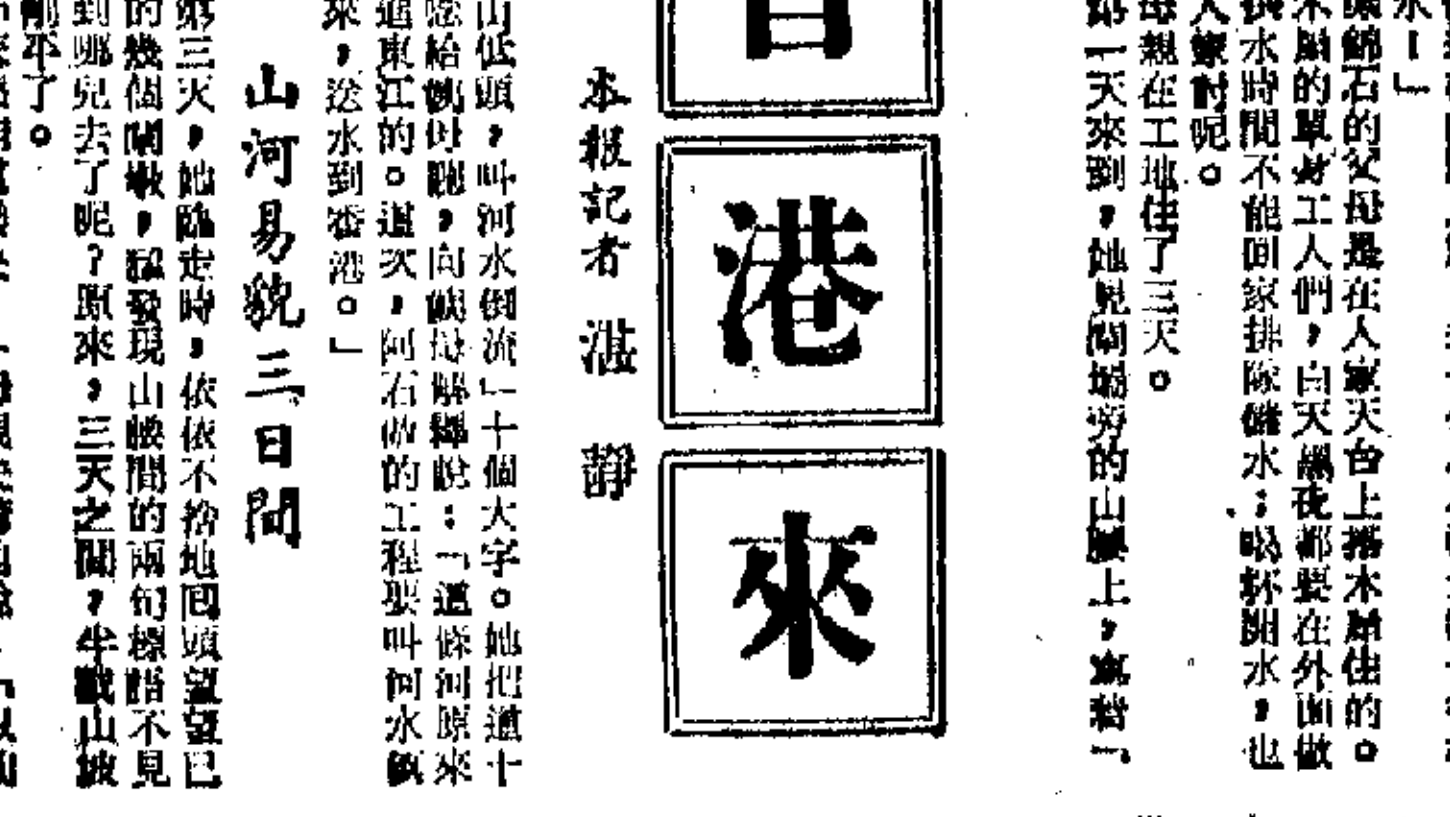 水！」
錦石的父母是在人家天台上搭木屋住的。
木屋的單身工人們，白天黑夜都要在外面做
供水時間不能回家排隊儲水；喝杯開水，也
人家討呢。
母親在工地住了三天。
第一天來到，她見閘壩旁的山腰上，寫着「
港
來
本報記者 湛 靜
山低頭，叫河水倒流」十個大字。她把這十
唸給她母聽，向她母解釋說：「這條河原來
通東江的。這次，阿石做的工程要叫河水
來，送水到香港。」
山河易貌三日間
第三天，她臨走時，依依不捨地回頭望望已
的幾個閘墩，猛發現山腰間的兩句標語不見
到哪兒去了呢？原來，三天之間，半截山坡
平了。